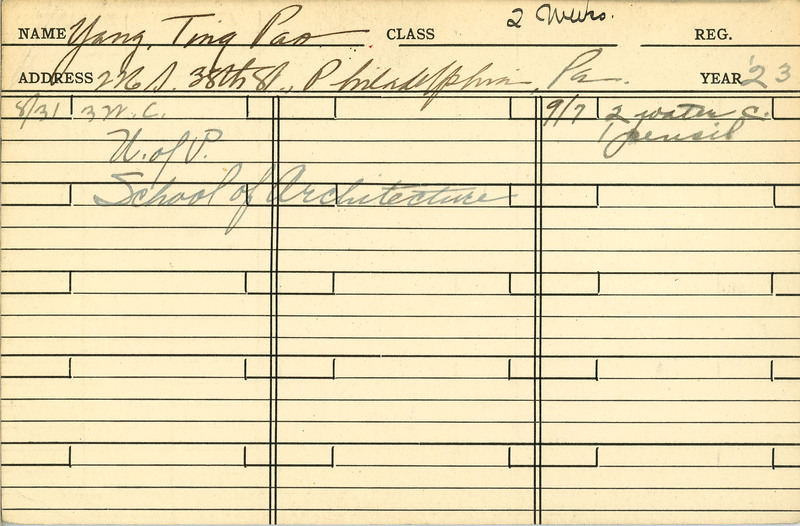 NAME Yang, Ting Pao CLASS 2 Weeks. REG.
ADDRESS S. 38th St., Philadelphia, Pa. YEAR '23
8/31 3 W. C. 9/7 2 water c.
1 pensil
U. of P.
School of Architecture